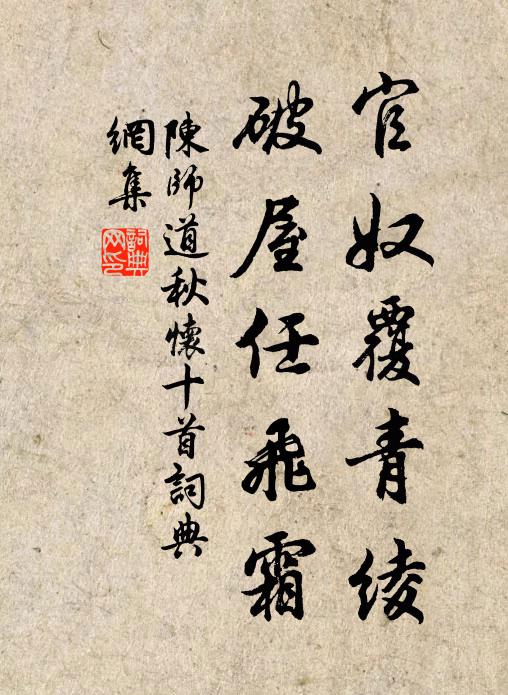 官奴覆青綾
破屋任飛霜
陳師道秋懷十首詞典
網集
詞典
网印